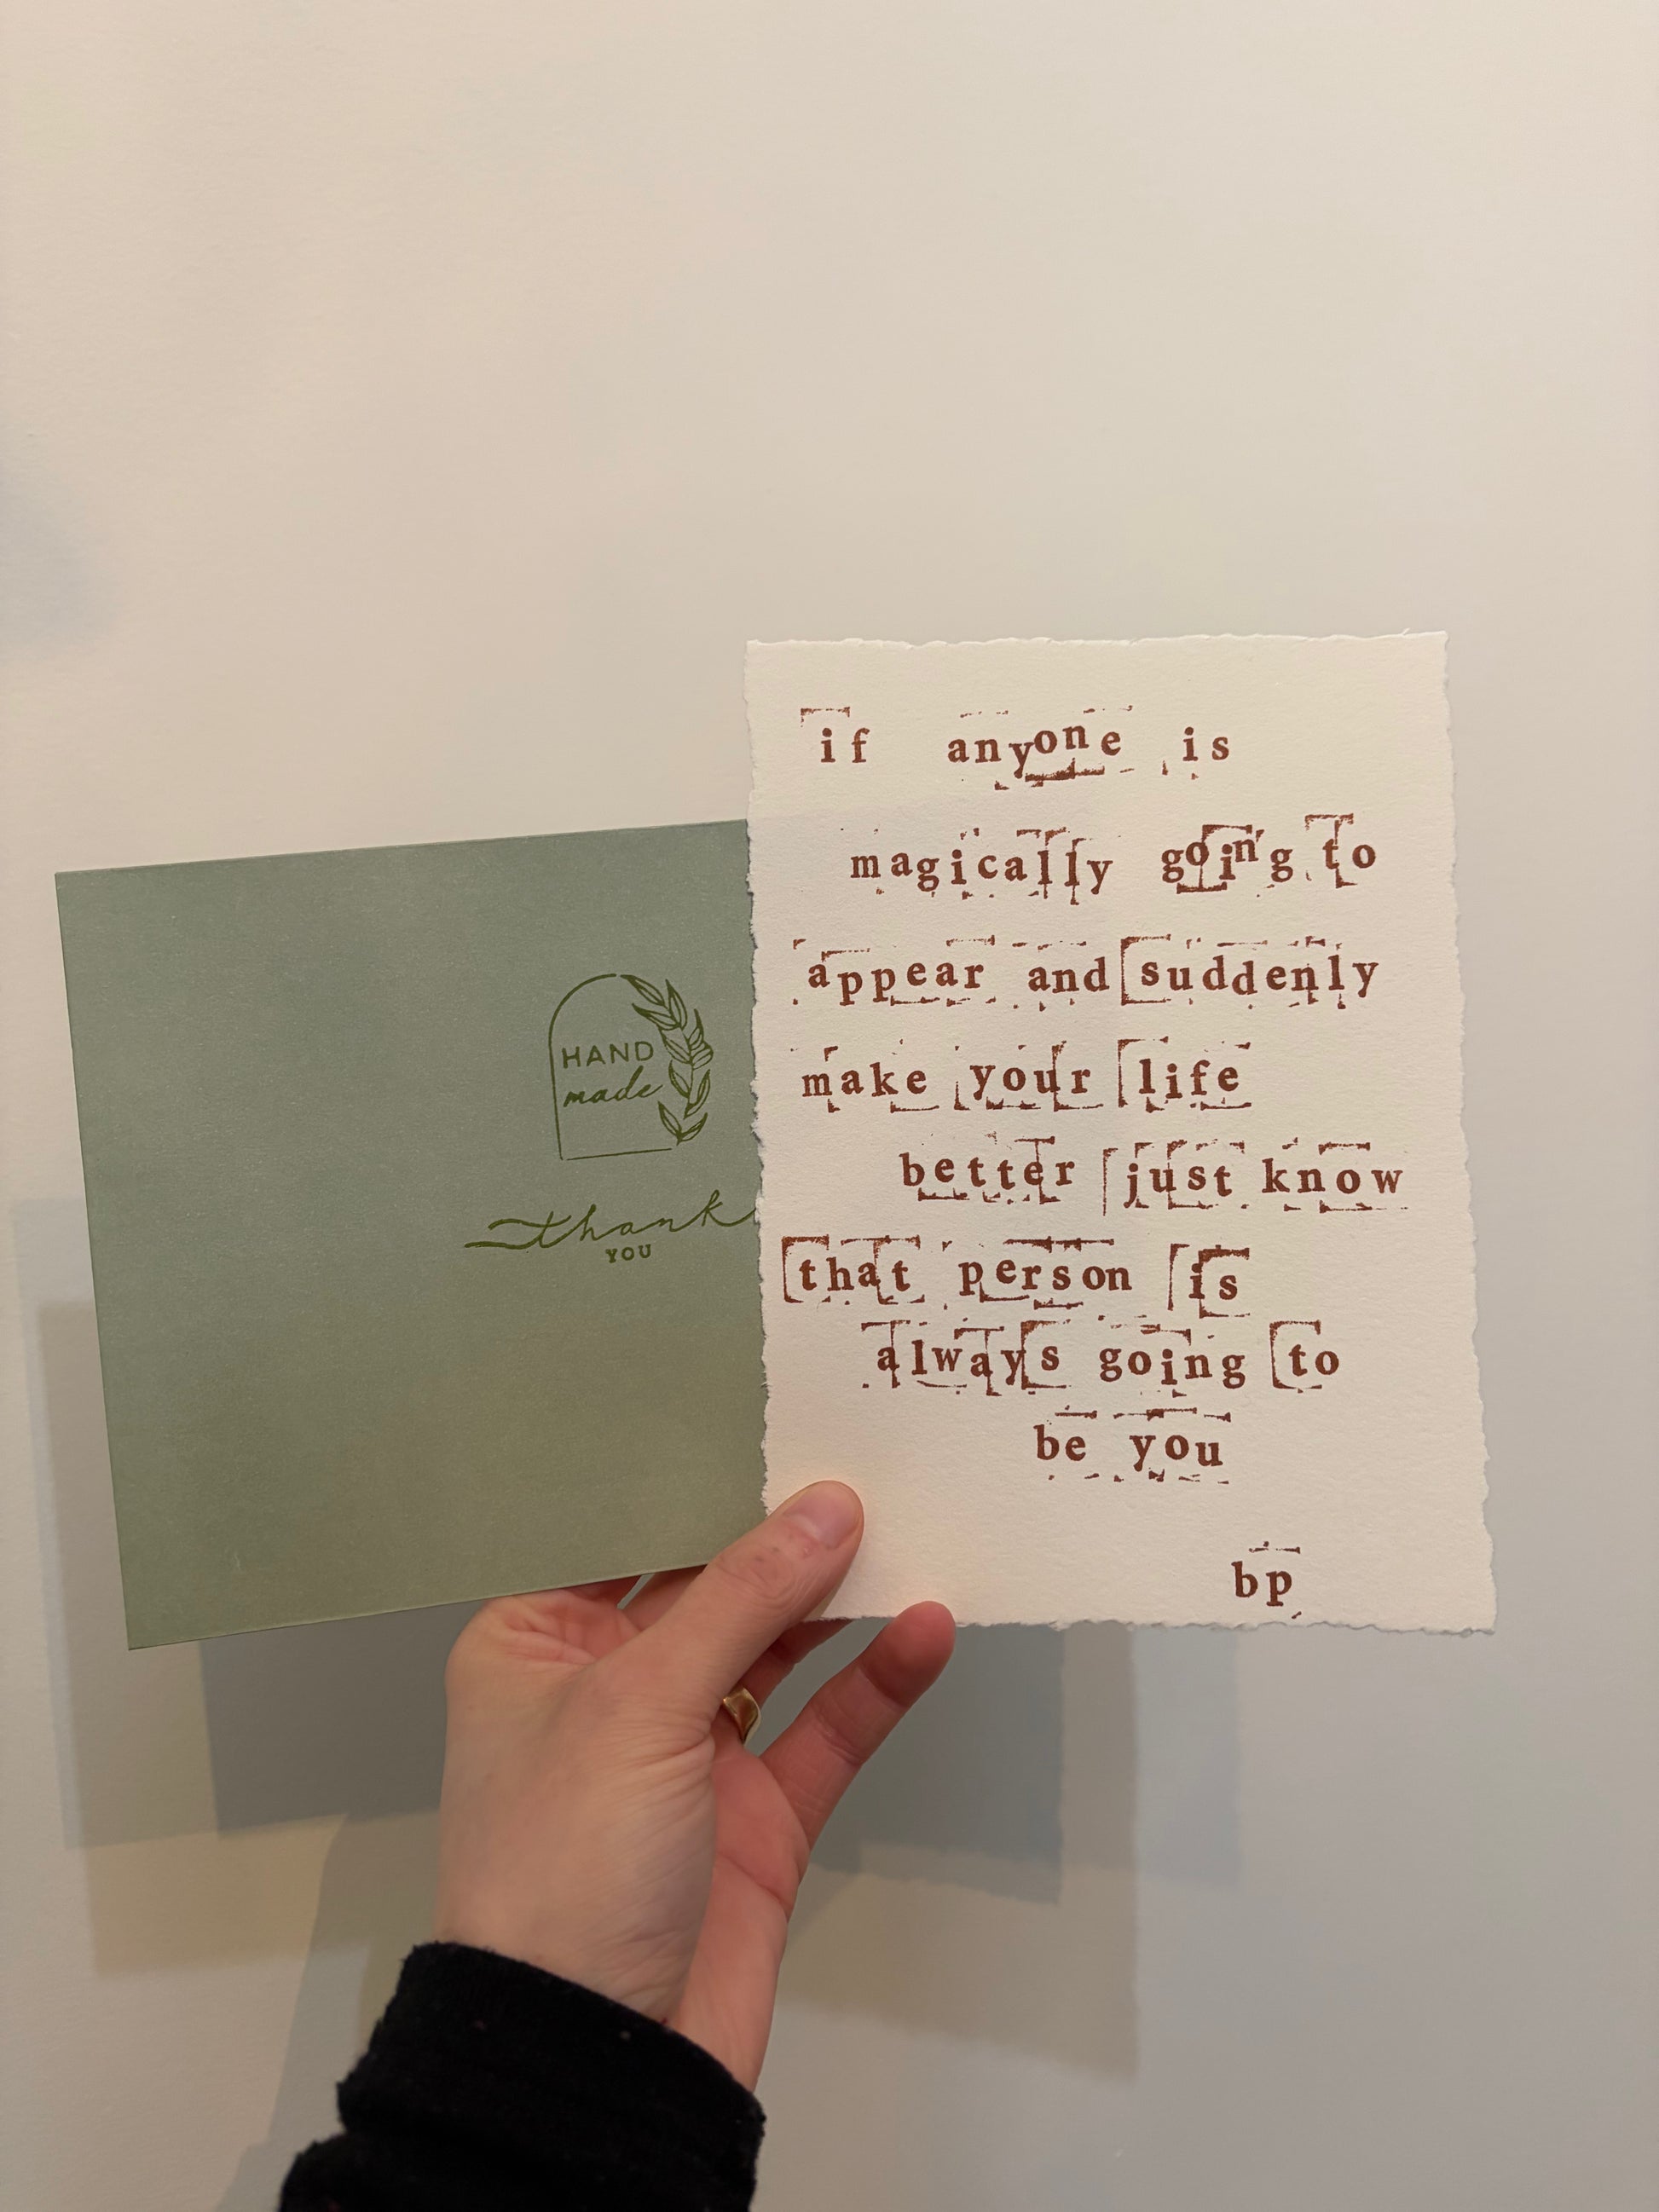 HAND
made
thank
YOU
if anyone is
magically going to
appear and suddenly
make your life
better just know
that person is
always going to
be you
bp